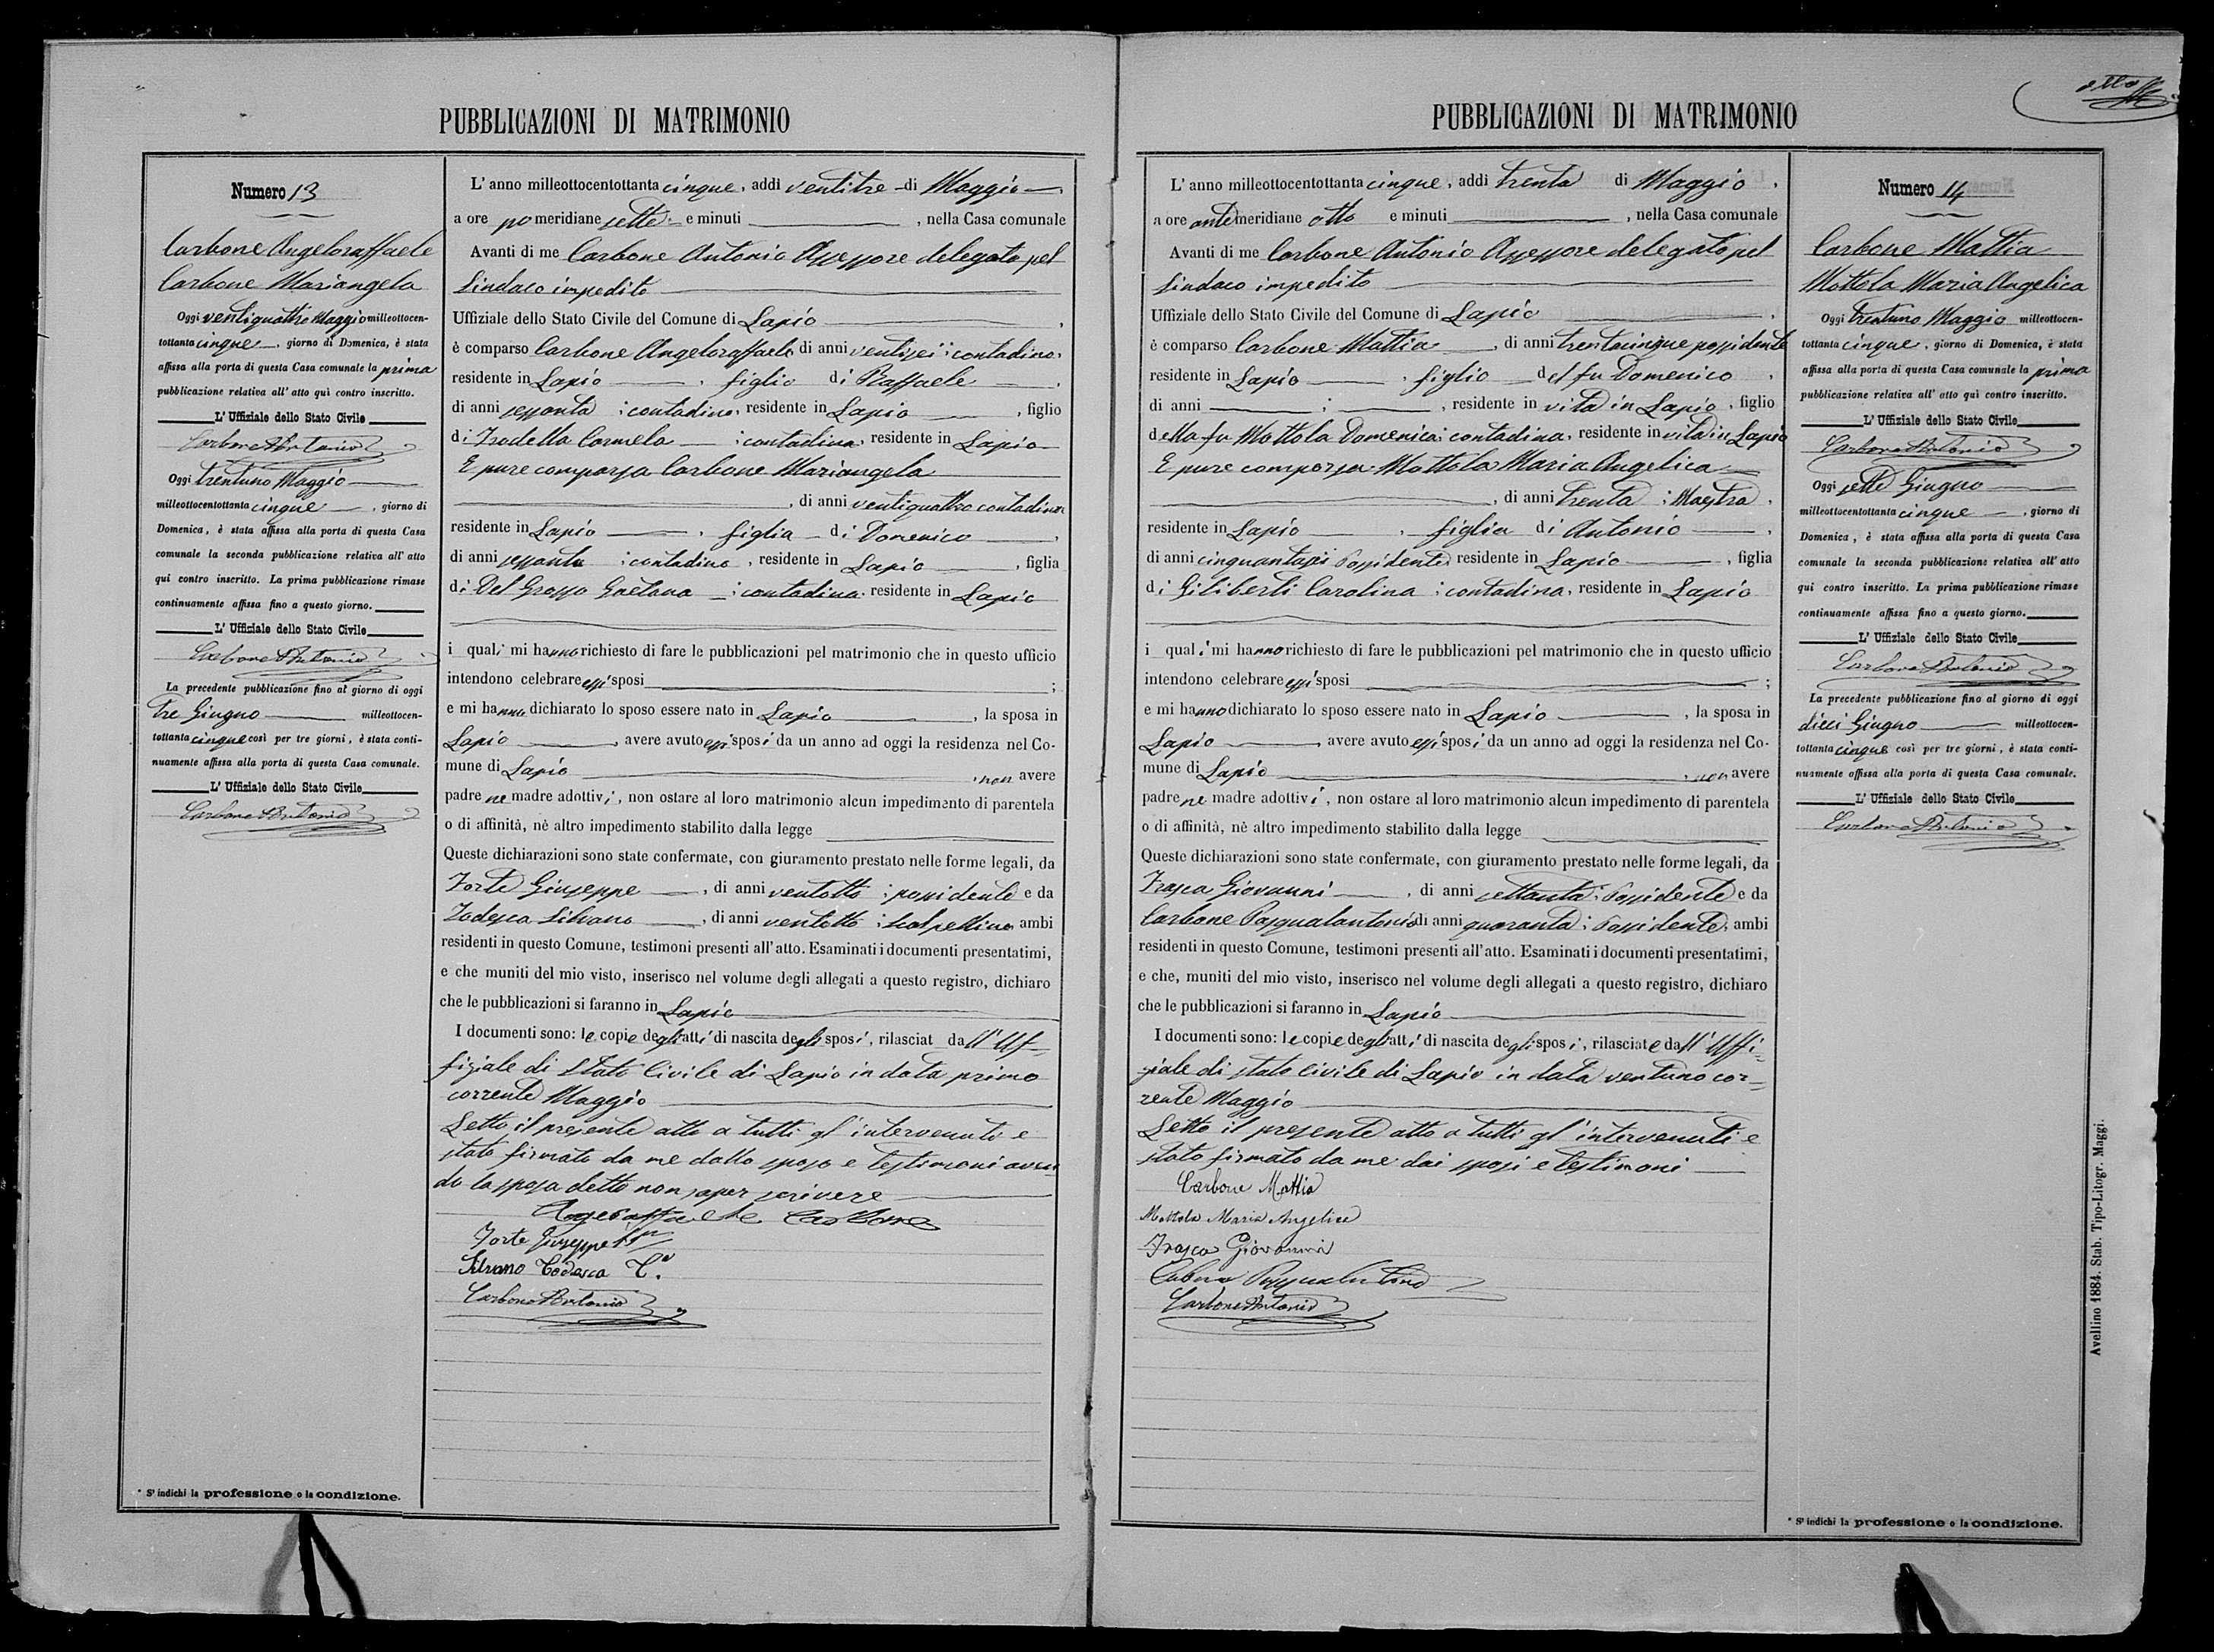 PUBBLICAZIONI DI MATRIMONIO
Numero 13
Carbone Angeloraffaele
Carbone Mariangela
Oggi ventiquattro Maggio milleottocen-
tottanta cinque, giorno di Domenica, è stata
affissa alla porta di questa Casa comunale la prima
pubblicazione relativa all'atto quì contro inscritto.
L'Uffiziale dello Stato Civile
Carbone Antonio
Oggi trentuno Maggio
milleottocentottanta cinque, giorno di
Domenica, è stata affissa alla porta di questa Casa
comunale la seconda pubblicazione relativa all'atto
qui contro inscritto. La prima pubblicazione rimase
continuamente affissa fino a questo giorno.
L'Uffiziale dello Stato Civile
Carbone Antonio
La precedente pubblicazione fino al giorno di oggi
tre Giugno milleottocen-
tottanta cinque così per tre giorni, è stata conti-
nuamente affissa alla porta di questa Casa comunale.
L'Uffiziale dello Stato Civile
Carbone Antonio
* S'indichi la professione o la condizione.
L'anno milleottocentottanta cinque, addì ventitre di Maggio
a ore pomeridiane sette e minuti , nella Casa comunale
Avanti di me Carbone Antonio Assessore delegato pel
Sindaco impedito
Uffiziale dello Stato Civile del Comune di Lapio
è comparso Carbone Angeloraffaele di anni ventisei; contadino,
residente in Lapio , figlio di Raffaele ,
di anni sessanta ; contadino, residente in Lapio , figlio
di Trodella Carmela ; contadina, residente in Lapio
E pure comparsa Carbone Mariangela
, di anni ventiquattro contadina
residente in Lapio , figlia di Domenico ,
di anni sessanta ; contadino, residente in Lapio , figlia
di Del Grosso Gaetana ; contadina, residente in Lapio
i quali mi hanno richiesto di fare le pubblicazioni pel matrimonio che in questo ufficio
intendono celebrare essi sposi ;
e mi hanno dichiarato lo sposo essere nato in Lapio , la sposa in
Lapio , avere avuto essi sposi da un anno ad oggi la residenza nel Co-
mune di Lapio , non avere
padre ne madre adottivi, non ostare al loro matrimonio alcun impedimento di parentela
o di affinità, nè altro impedimento stabilito dalla legge
Queste dichiarazioni sono state confermate, con giuramento prestato nelle forme legali, da
Forte Giuseppe , di anni ventotto ; possidente e da
Todesca Silvano , di anni ventotto ; scalpellino, ambi
residenti in questo Comune, testimoni presenti all'atto. Esaminati i documenti presentatimi,
e che muniti del mio visto, inserisco nel volume degli allegati a questo registro, dichiaro
che le pubblicazioni si faranno in Lapio
I documenti sono: le copie degli atti di nascita degli sposi, rilasciat da ll'Uf-
fiziale di Stato Civile di Lapio in data primo
corrente Maggio
Letto il presente atto a tutti gl'intervenuti e
stato firmato da me dallo sposo e testimoni aven
do la sposa detto non saper scrivere
Angeraffaele Carbone
Forte Giuseppe
Silvano Todesca
Carbone Antonio
otto
PUBBLICAZIONI DI MATRIMONIO
L'anno milleottocentottanta cinque, addì trenta di Maggio,
a ore antemeridiane otto e minuti , nella Casa comunale
Avanti di me Carbone Antonio Assessore delegato pel
Sindaco impedito
Uffiziale dello Stato Civile del Comune di Lapio
è comparso Carbone Mattia , di anni trentacinque possidente
residente in Lapio , figlio del fu Domenico ,
di anni ; , residente in vita in Lapio, figlio
della fu Mottola Domenica; contadina, residente in vita in Lapio
E pure comparsa Mottola Maria Angelica
, di anni trenta ; Maestra,
residente in Lapio , figlia di Antonio ,
di anni cinquantasei Possidente, residente in Lapio , figlia
di Giliberti Carolina ; contadina, residente in Lapio
i quali mi hanno richiesto di fare le pubblicazioni pel matrimonio che in questo ufficio
intendono celebrare essi sposi ;
e mi hanno dichiarato lo sposo essere nato in Lapio , la sposa in
Lapio , avere avuto essi sposi da un anno ad oggi la residenza nel Co-
mune di Lapio , non avere
padre ne madre adottivi, non ostare al loro matrimonio alcun impedimento di parentela
o di affinità, nè altro impedimento stabilito dalla legge
Queste dichiarazioni sono state confermate, con giuramento prestato nelle forme legali, da
Frasca Giovanni , di anni settanta; Possidente e da
Carbone Pasqualantonio di anni quaranta; Possidente, ambi
residenti in questo Comune, testimoni presenti all'atto. Esaminati i documenti presentatimi,
e che, muniti del mio visto, inserisco nel volume degli allegati a questo registro, dichiaro
che le pubblicazioni si faranno in Lapio
I documenti sono: le copie degli atti di nascita degli sposi, rilasciate da ll'Uffi-
ziale di stato civile di Lapio in data ventuno cor-
rente Maggio
Letto il presente atto a tutti gl'intervenuti e
stato firmato da me dai sposi e testimoni
Carbone Mattia
Mottola Maria Angelica
Frasca Giovanni
Carbone Pasqualantonio
Carbone Antonio
Numero 14
Carbone Mattia
Mottola Maria Angelica
Oggi trentuno Maggio milleottocen-
tottanta cinque, giorno di Domenica, è stata
affissa alla porta di questa Casa comunale la prima
pubblicazione relativa all'atto quì contro inscritto.
L'Uffiziale dello Stato Civile
Carbone Antonio
Oggi sette Giugno
milleottocentottanta cinque , giorno di
Domenica, è stata affissa alla porta di questa Casa
comunale la seconda pubblicazione relativa all'atto
qui contro inscritto. La prima pubblicazione rimase
continuamente affissa fino a questo giorno.
L'Uffiziale dello Stato Civile
Carbone Antonio
La precedente pubblicazione fino al giorno di oggi
dieci Giugno milleottocen-
tottanta cinque così per tre giorni, è stata conti-
nuamente affissa alla porta di questa Casa comunale.
L'Uffiziale dello Stato Civile
Carbone Antonio
* S'indichi la professione o la condizione.
Avellino 1884. Stab. Tipo-Litogr. Maggi.